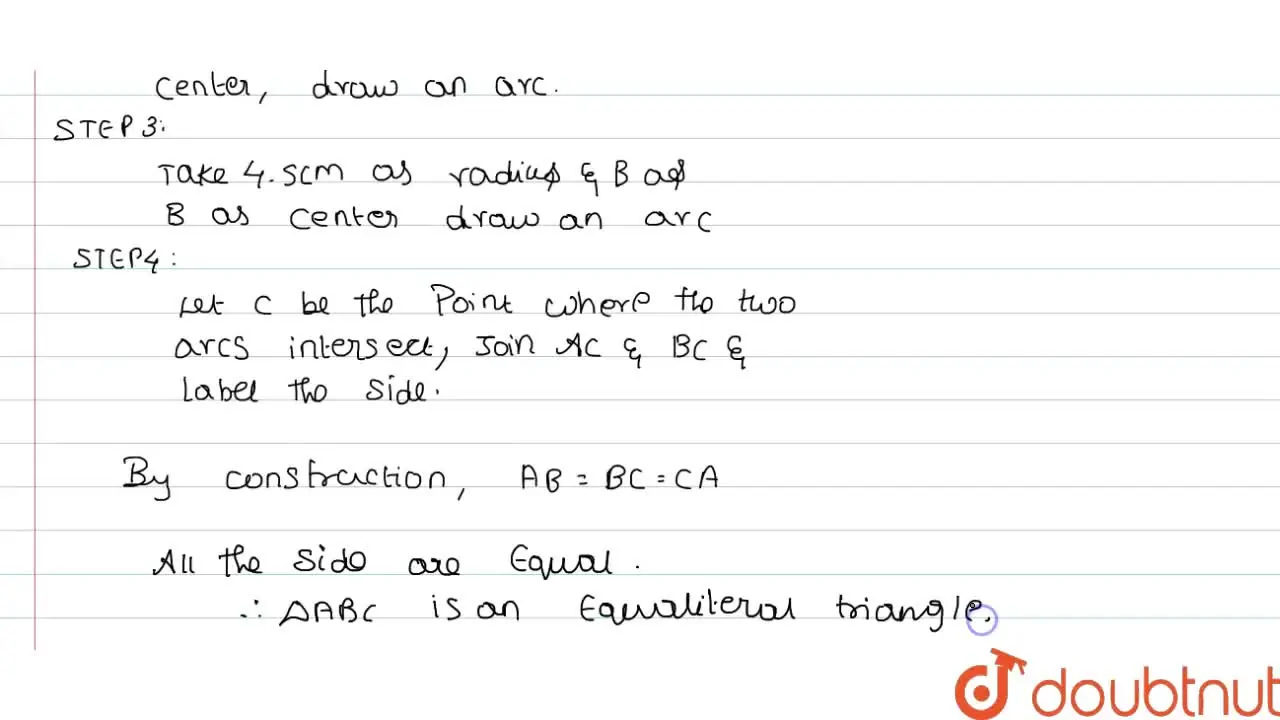 center, draw an arc.
STEP 3:
Take 4.5cm as radius & B as
B as center draw an arc
STEP4:
Let C be the Point where the two
arcs intersect, Join AC & BC &
Label the Side.
By construction, AB = BC = CA
All the Side are Equal.
∴ ΔABC is an Equaliteral triangle.
doubtnut